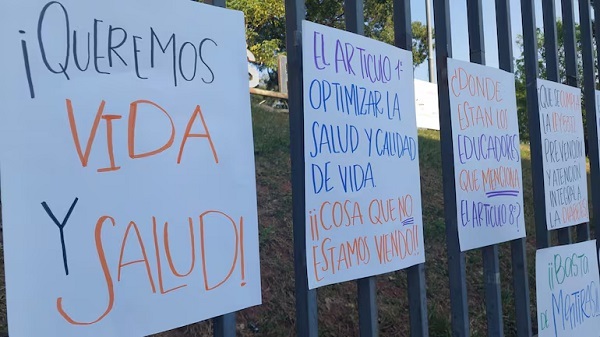 ¡QUEREMOS
VIDA
Y
SALUD!
EL ARTICULO 1º:
OPTIMIZAR LA
SALUD Y CALIDAD
DE VIDA.
¡¡COSA QUE NO
ESTAMOS VIENDO!!
¿DONDE
ESTAN LOS
EDUCADORES
QUE MENCIONA
EL ARTICULO 8º?
QUE SE CUMPLA
LA
PREVENCIÓN
Y ATENCIÓN
INTEGRAL A
LA
¡¡BASTA
DE MENTIRAS!!